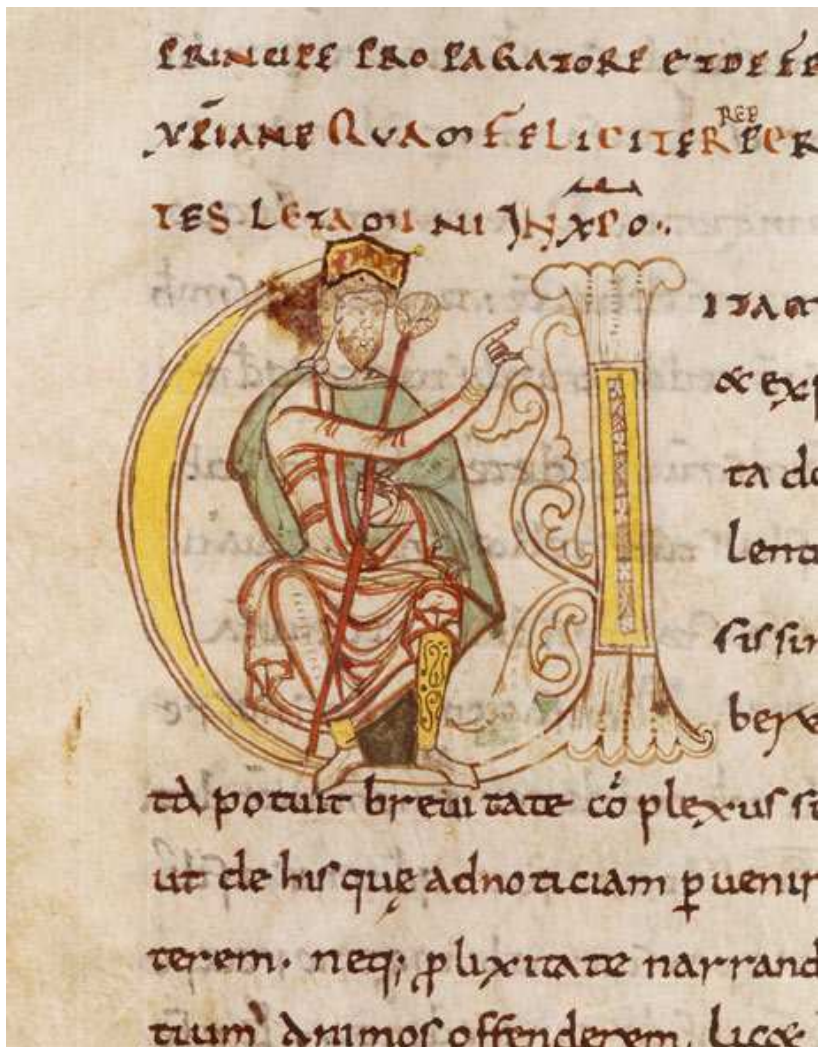 PRINCIPE PROPAGATORE ET DEFE
XPIANE QVAM FELICITER
TES LETAMINI IN XPO.
V ITAM
& exp
ta do
lenti
sissim
ta potuit breuitate cō plexus
ut de his quę ad noticiam ꝑuenir
terem. neq; ꝓlixitate narrand
tium animos offenderem. lic&